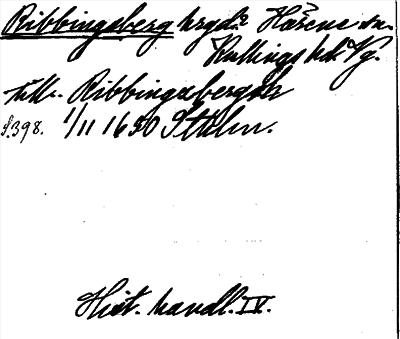 Ribbingsberg hrgd? Härene sn.
Kullings hd. Vg.
till. Ribbingsbergh
s.398. 1/11 1650 Sthlm.
Hist. handl. IV.